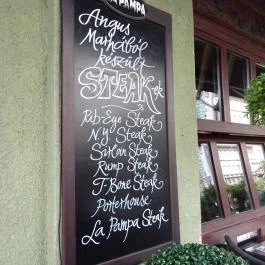 LA PAMPA
Angus
Marhából
készült
STEAK-ek
Rib-Eye Steak
NY Steak
Sirloin Steak
Rump Steak
T-Bone Steak
Porterhouse
La Pampa Steak